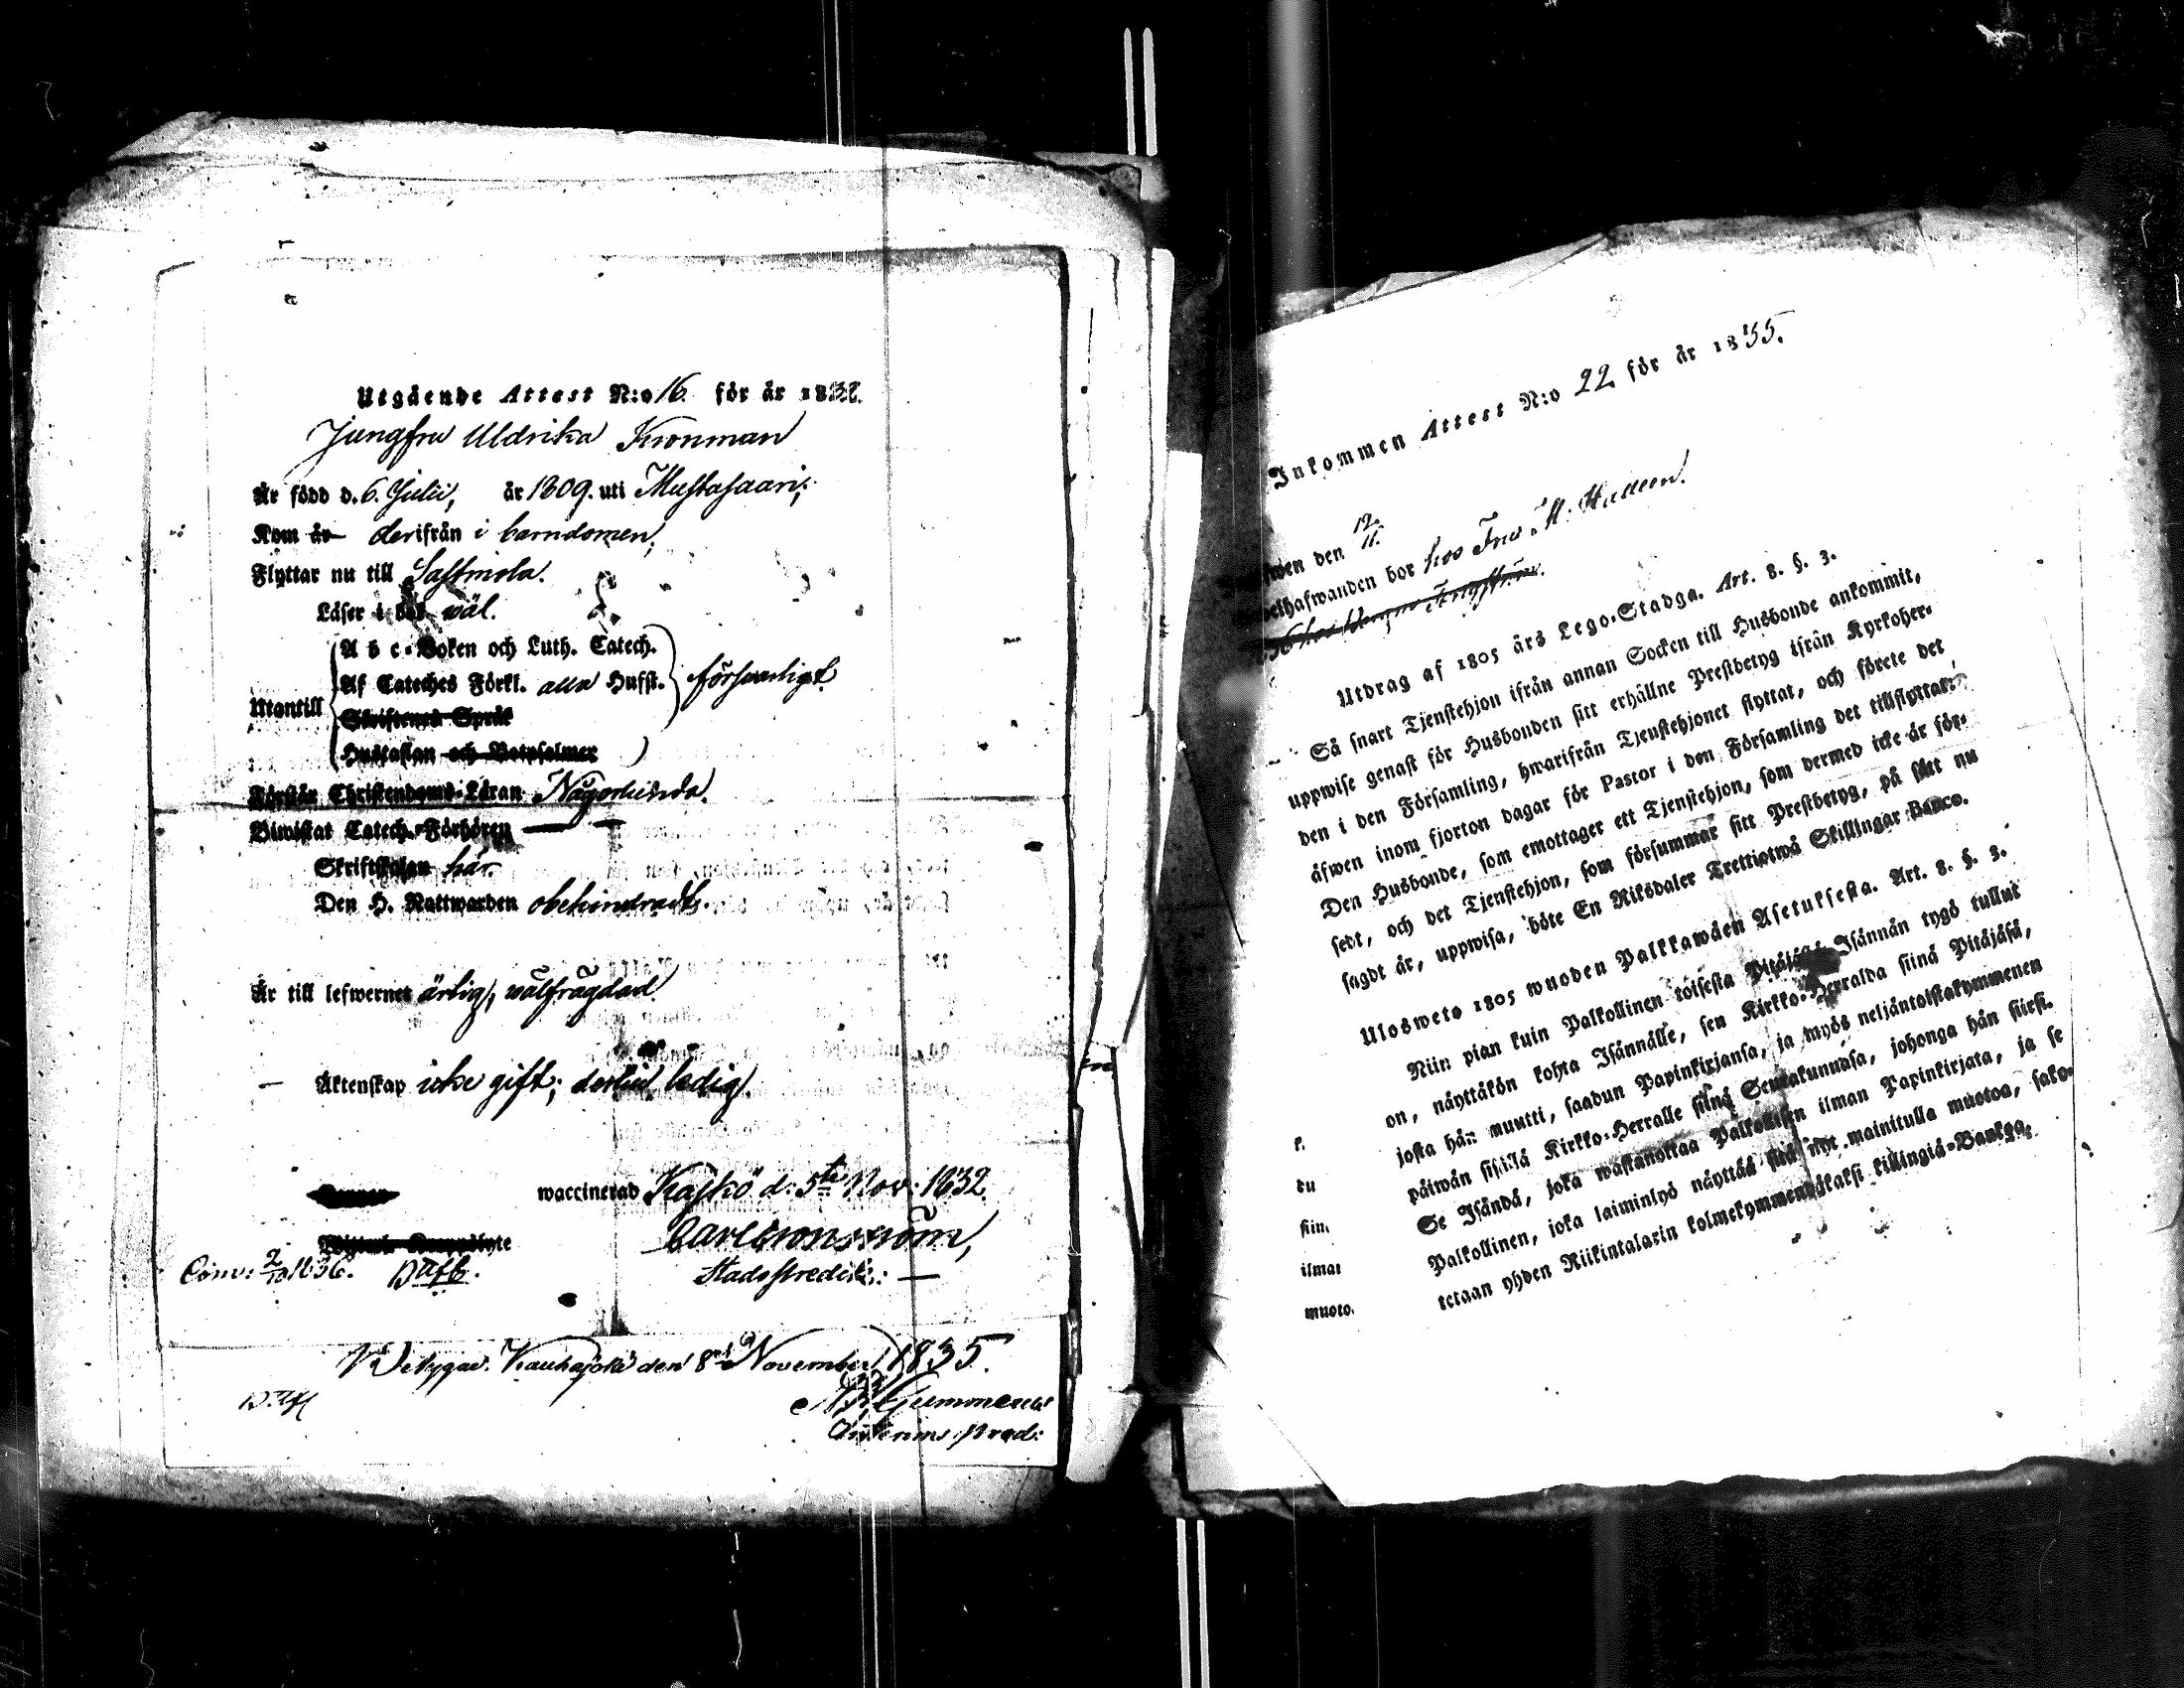 Utgående Attest N:o 16. för år 1832.
Jungfru Uldrika Kronman
Är född d. 6. Julii, år 1809. uti Mustasaari;
Kom år derifrån i barndomen;
Flyttar nu till Sastmola.
Läser i bok wäl.
Utantill
A b c-Boken och Luth. Catech.
Af Cateches Förkl. alla Husst. försvarligt
Skriftenes Språk
Hustaflan och Botpsalmer
Förstår Christendoms-Läran Någorlunda.
Biwistat Catech.-Förhören —
Skriftskolan här.
Den H. Nattwarden obehindradt.
Är till lefwernet ärlig, wälfrägdad
— Äktenskap icke gift; ledig.
waccinerad Kaskö d. 5te Nov: 1832.
Stadspredik:
1836.
Kauhajoki den 8de November 1835.
Gummerus
Inkommen Attest N:o 22 för år 1835.
den 12/11.
bor hos Fru M:
Utdrag af 1805 års Lego-Stadga. Art. 8. §. 3.
Så snart Tjenstehjon ifrån annan Socken till Husbonde ankommit,
uppwise genast för Husbonden sitt erhållne Prestbetyg ifrån Kyrkoher-
den i den Församling, hwarifrån Tjenstehjonet flyttat, och förete det
äfwen inom fjorton dagar för Pastor i den Församling det tillflyttat.
Den Husbonde, som emottager ett Tjenstehjon, som dermed icke är för-
sedt, och det Tjenstehjon, som försummar sitt Prestbetyg, på sätt nu
sagdt är, uppwisa, böte En Riksdaler Trettiotwå Skillingar Banco.
Ulosweto 1805 wuoden Palkkawäen Asetuksesta. Art. 8. §. 3.
Niin pian kuin Palkollinen toisesta Pitäjästä Isännän tygö tullut
on, näyttäkön kohta Isännälle, sen Kirkko-Herralda siinä Pitäjäsä,
josta hän muutti, saadun Papinkirjansa, ja myös neljäntoistakymmenen
päiwän sisällä Kirkko-Herralle siinä Seurakunnasa, johonga hän siirsi.
Se Isändä, joka wastanottaa Palkollisen ilman Papinkirjata, ja se
Palkollinen, joka laiminlyö näyttää sitä nyt mainitulla muotoa, sako-
tetaan yhden Riikintalarin kolmekymmentäkaksi killingiä-Bankoa.
k.
du
siin.
ilmat
muoto.